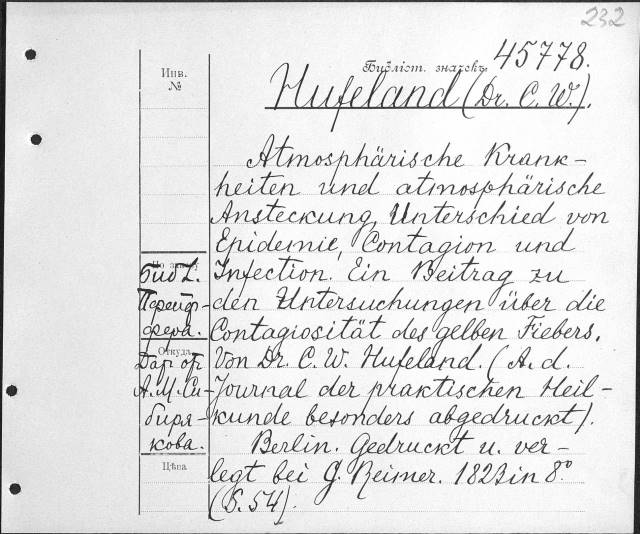 232
45778.
Библіот. значекъ
Инв.
№
Hufeland (Dr. C. W.).
Atmosphärische Krank-
heiten und atmosphärische
Ansteckung, Unterschied von
Epidemie, Contagion und
Infection. Ein Beitrag zu
den Untersuchungen über die
Contagiosität des gelben Fiebers.
Von Dr. C. W. Hufeland. (A. d.
Journal der praktischen Heil-
kunde besonders abgedruckt).
Berlin. Gedruckt u. ver-
legt bei G. Reimer. 1823 in 8º
(S. 54).
Библ.
Пфейф-
фера.
Откуда
Дар от
А. М. Си-
биря-
кова.
Цѣна